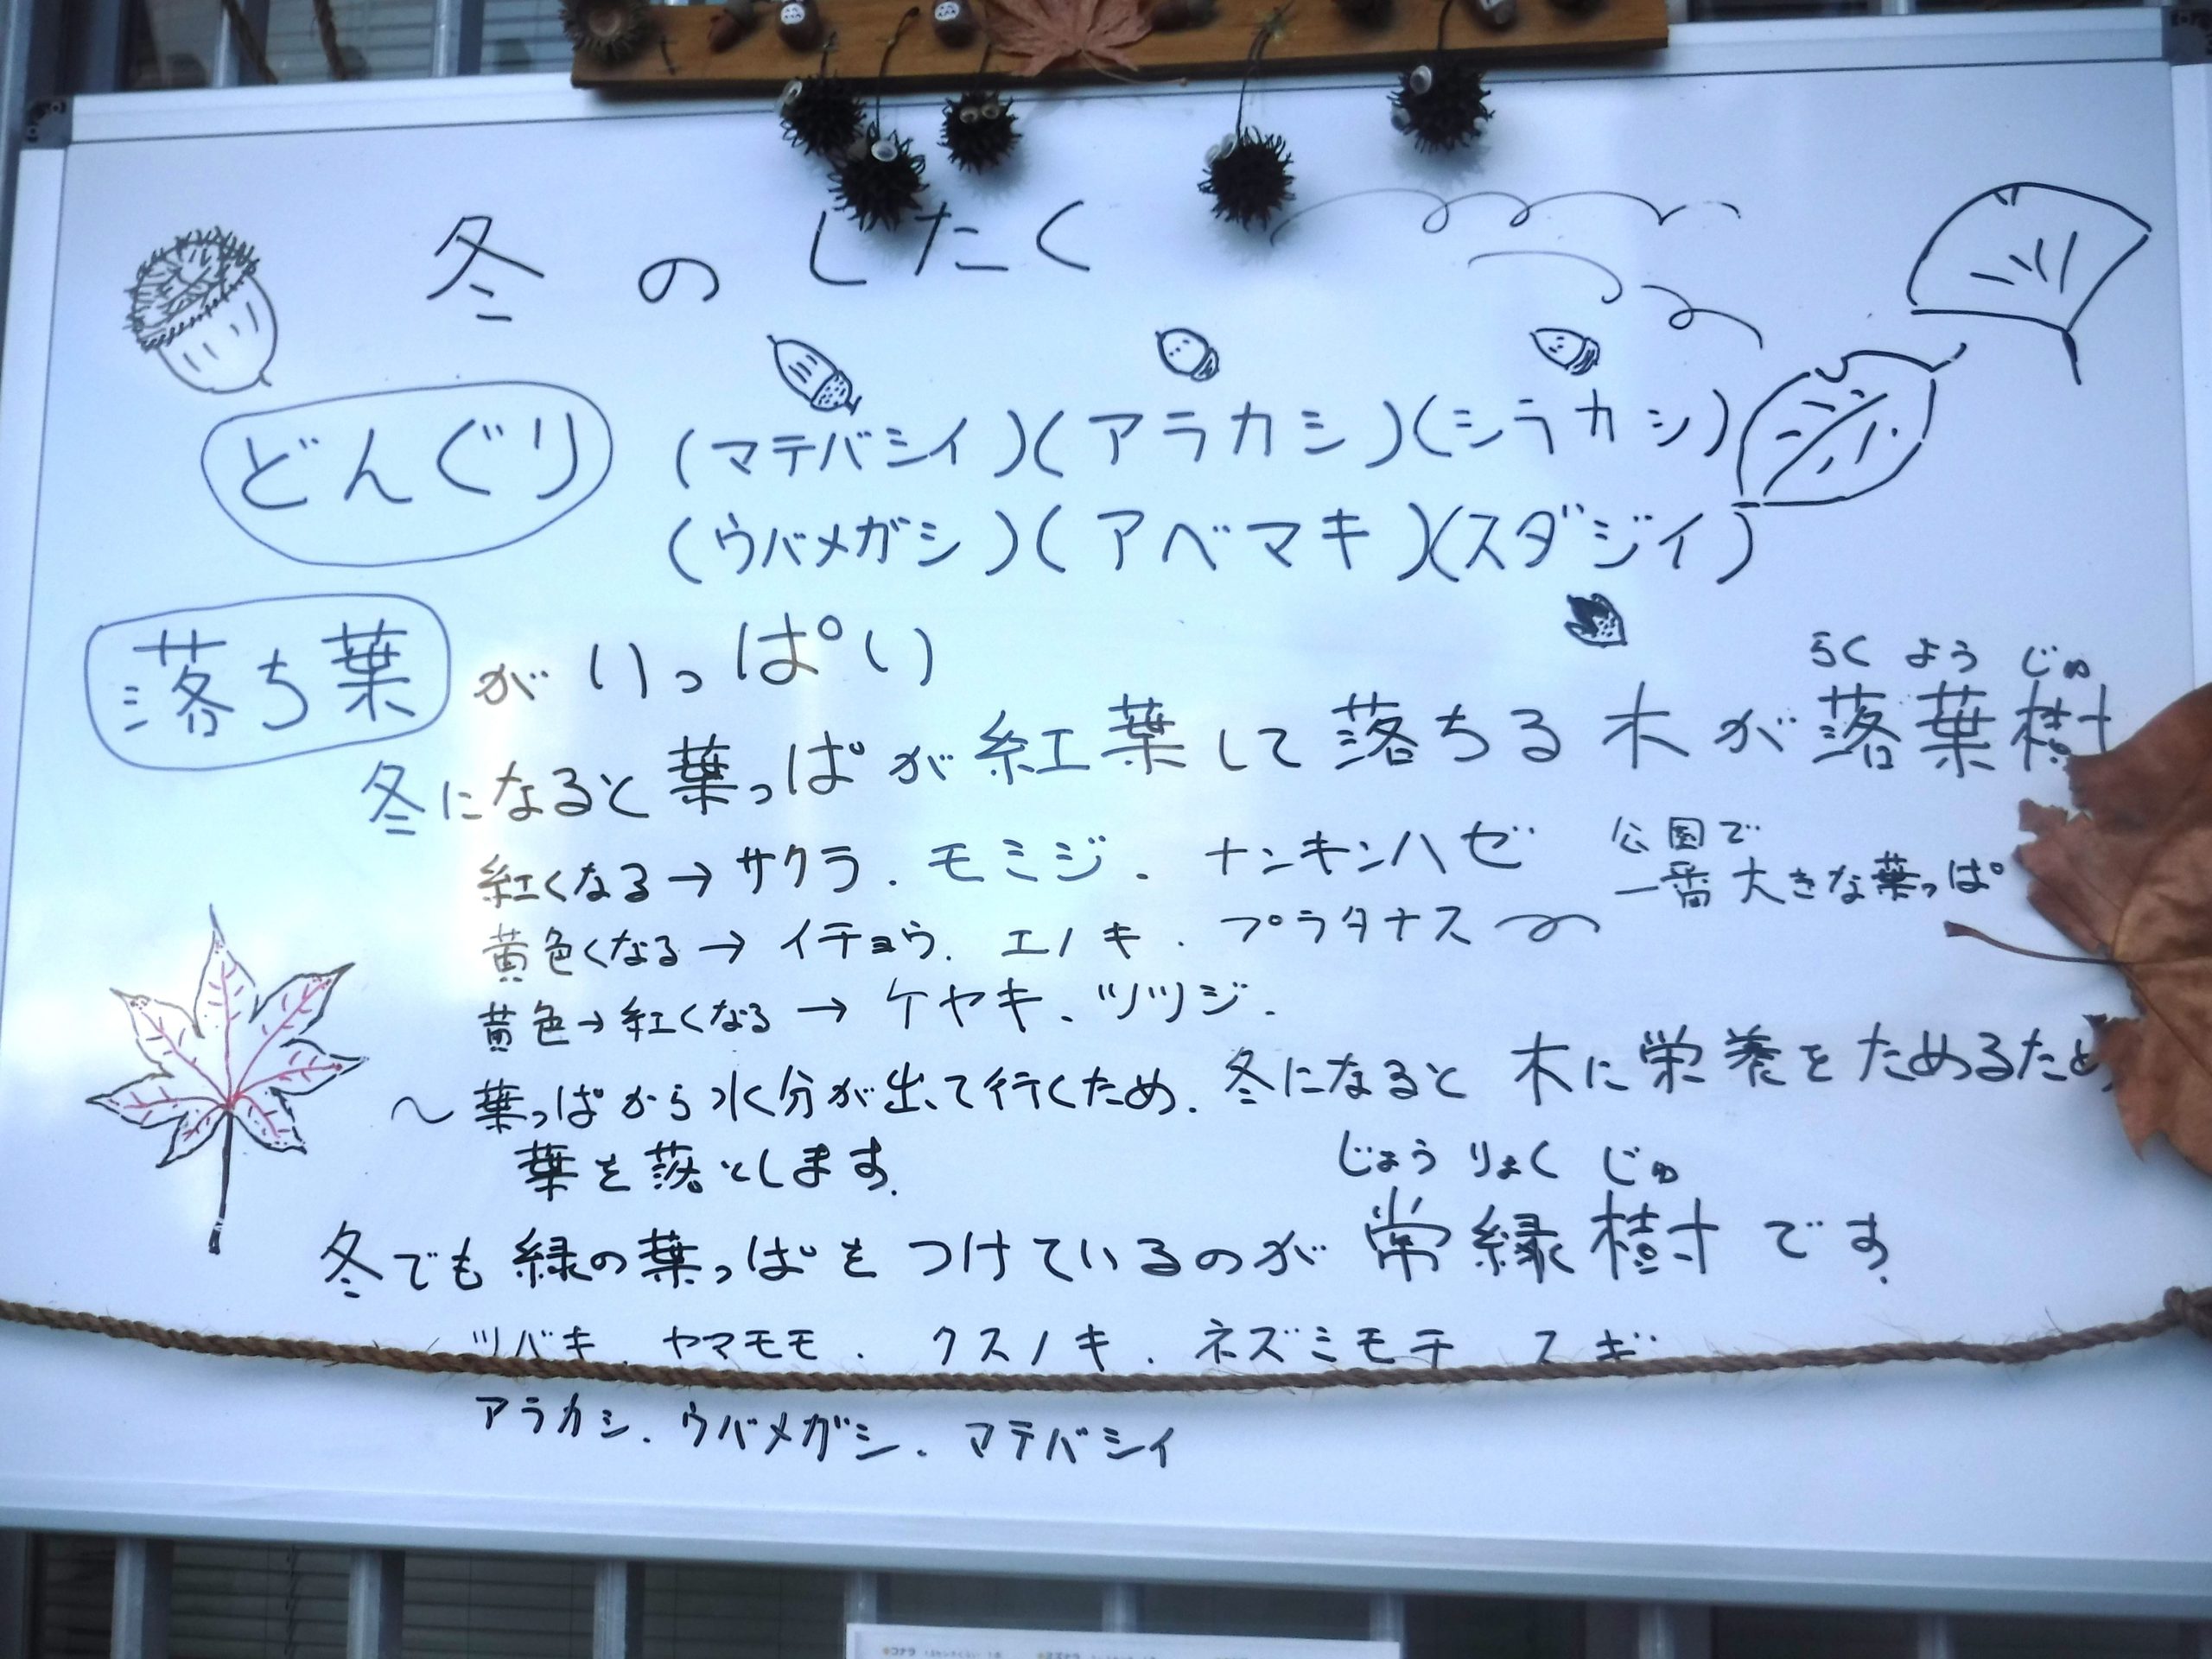 冬のしたく
どんぐり (マテバシイ)(アラカシ)(シラカシ)
(ウバメガシ)(アベマキ)(スダジイ)
落ち葉がいっぱい
らくようじゅ
冬になると葉っぱが紅葉して落ちる木が落葉樹
紅くなる→サクラ.モミジ.ナンキンハゼ
公園で
一番大きな葉っぱ
黄色くなる→イチョウ.エノキ.プラタナス
黄色→紅くなる→ケヤキ、ツツジ.
〜葉っぱから水分が出て行くため.冬になると木に栄養をためるため
葉を落とします.
じょうりょくじゅ
冬でも緑の葉っぱをつけているのが常緑樹です.
ツバキ.ヤマモモ.クスノキ.ネズミモチ スギ
アラカシ.ウバメガシ.マテバシイ
コナラ